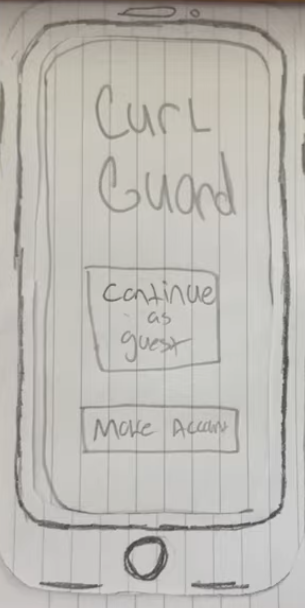 Curl
Guard
Continue
as
guest
Make Account